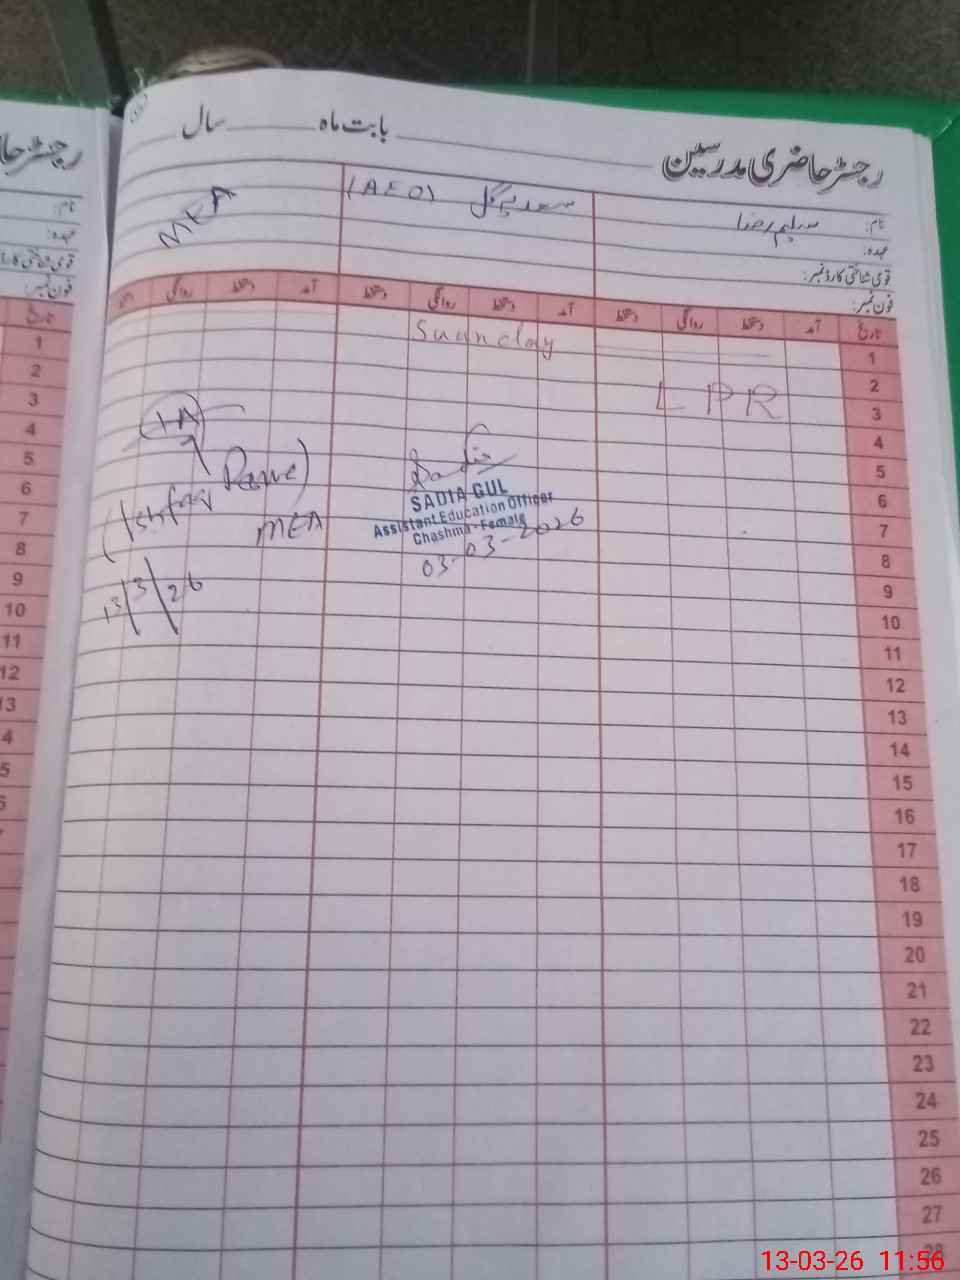 رجسٹر حاضری مدرسین
بابت ماہ
سال
نام:
عہدہ:
قومی شناختی کارڈ نمبر:
فون نمبر:
سعدیہ گل (AEO)
MEA
تاریخ آمد دستخط روانگی دستخط آمد دستخط روانگی دستخط آمد دستخط روانگی دستخط
1
Suanday
2
L P R
3
4
5
6
7
8
9
10
11
12
13
14
15
16
17
18
19
20
21
22
23
24
25
26
27
28
SADIA GUL
Assistant Education Officer
Chashma - Female
03-03-2026
MEA
13/3/26
رجسٹر حا
نام:
عہدہ:
قومی شناختی کارڈ
فون نمبر:
تاریخ
1
2
3
4
5
6
7
8
9
10
11
12
13
4
5
13-03-26 11:56